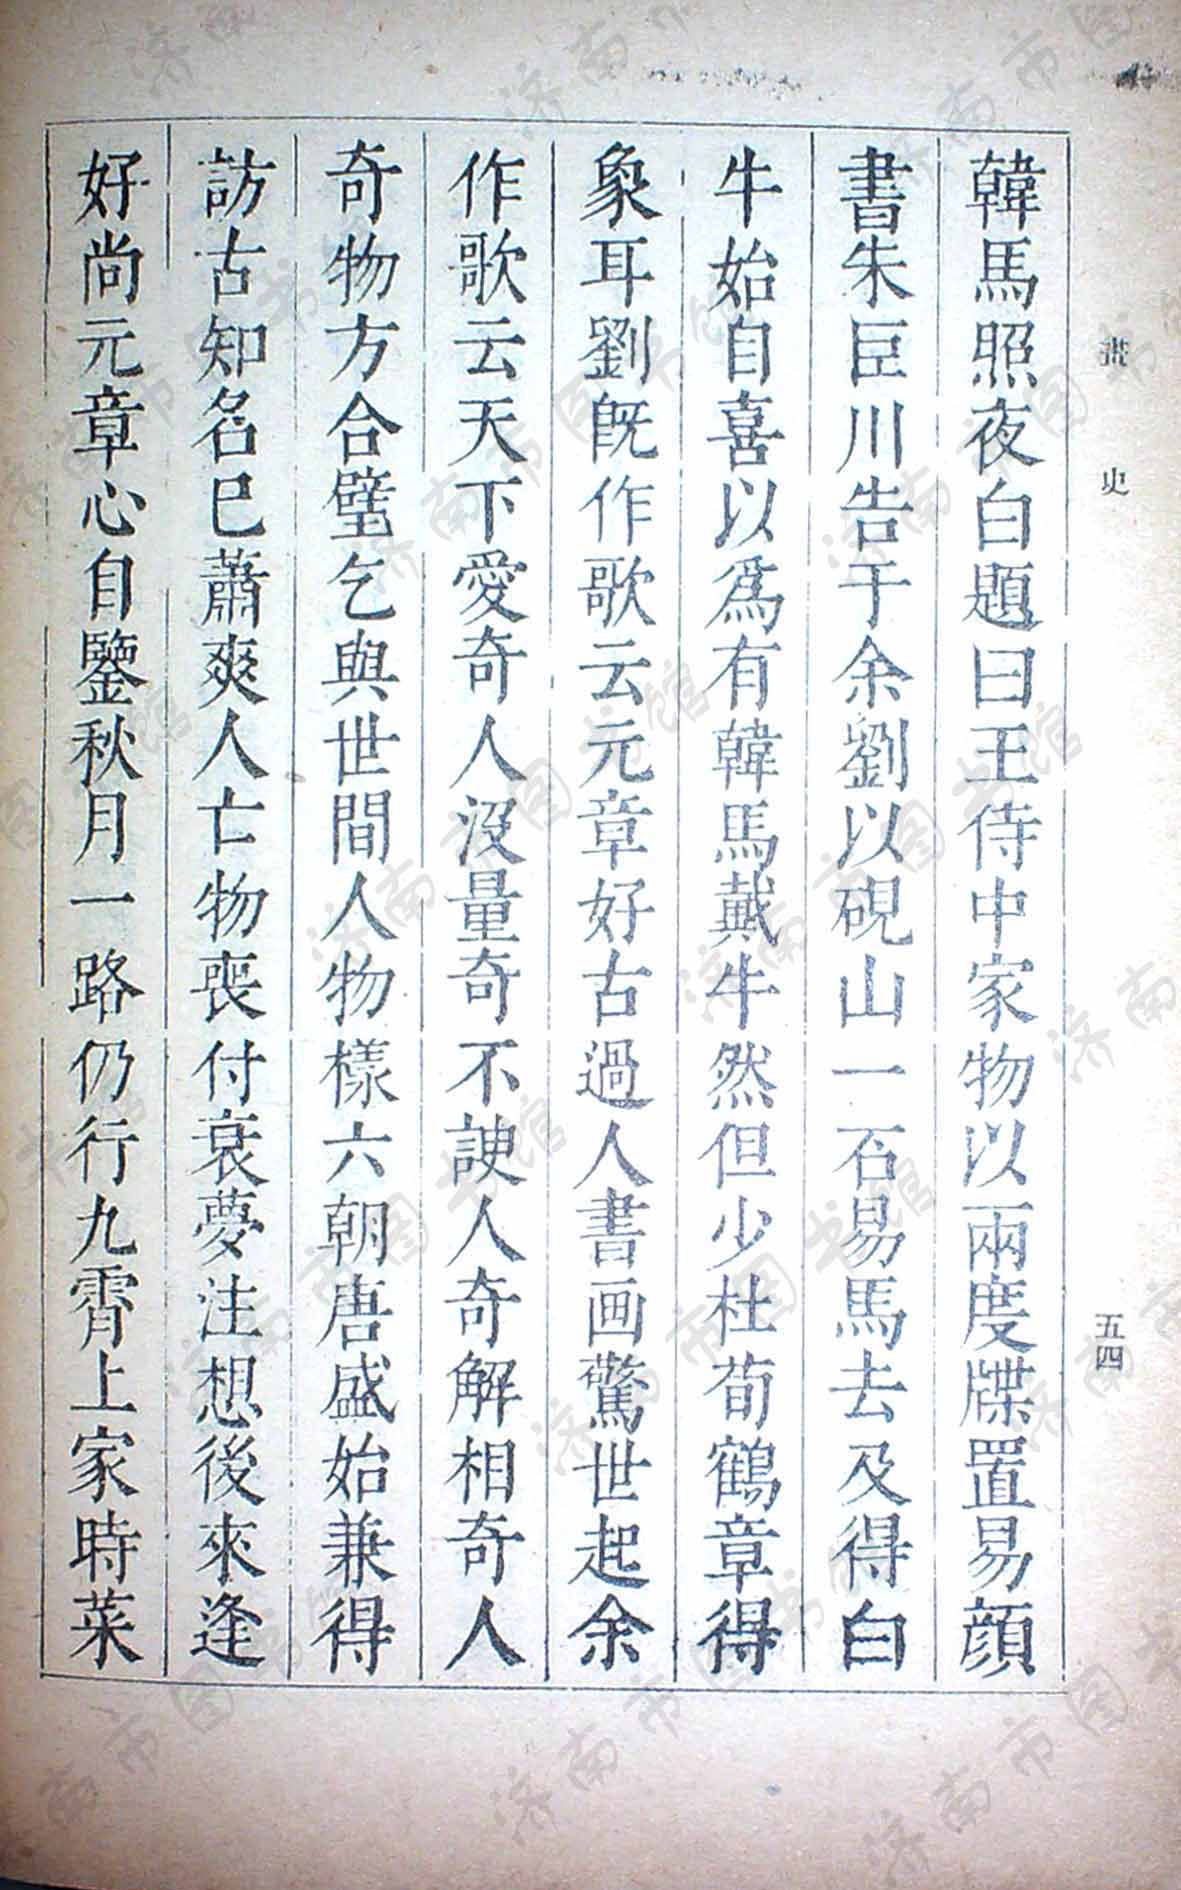 畫史
五四
韓馬照夜白題曰王侍中家物以兩度牒置易顔
書朱臣川告于余劉以硯山一石易馬去及得白
牛始自喜以爲有韓馬戴牛然但少杜荀鶴章得
象耳劉旣作歌云元章好古過人書画驚世起余
作歌云天下愛奇人沒量奇不諛人奇解相奇人
奇物方合璧乞與世間人物樣六朝唐盛始兼得
訪古知名巳蕭爽人亡物喪付衰夢注想後來逢
好尚元章心自鑒秋月一路仍行九霄上家時菜
济南市图书馆